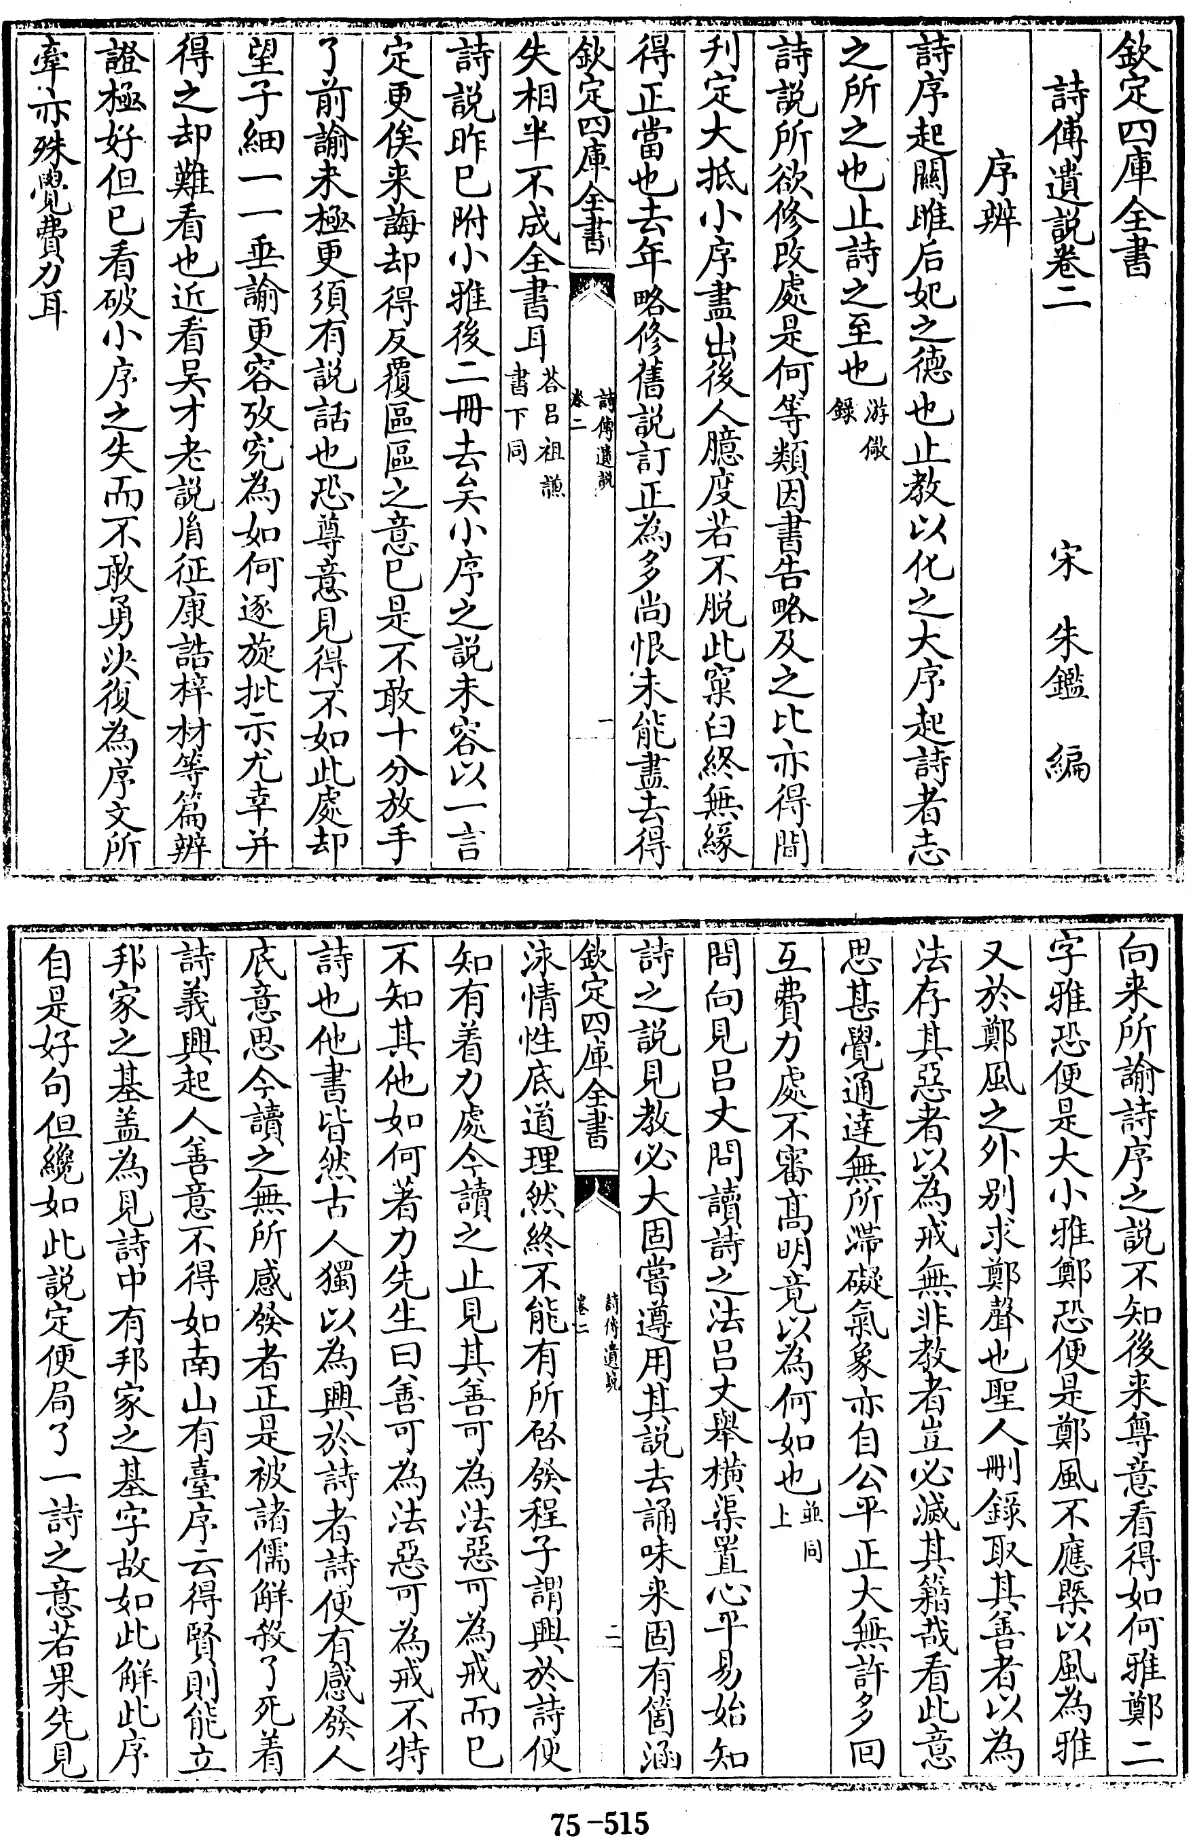 欽定四庫全書
詩傳遺說卷二
宋 朱鑑 編
序辨
詩序起關雎后妃之德也止教以化之大序起詩者志
之所之也止詩之至也游儆錄
詩說所欲修改處是何等類因書告略及之比亦得間
刋定大抵小序盡出後人臆度若不脫此窠臼終無緣
得正當也去年略修舊說訂正為多尚恨未能盡去得
欽定四庫全書
詩傳遺說
卷二
一
失相半不成全書耳荅呂祖謙書下同
詩說昨已附小雅後二冊去矣小序之說未容以一言
定更俟来誨却得反覆區區之意已是不敢十分放手
了前諭未極更須有說話也恐尊意見得不如此處却
望子細一一垂諭更容攷究為如何逐旋批示尤幸并
得之却難看也近看吴才老說胤征康誥梓材等篇辨
證極好但已看破小序之失而不敢勇决復為序文所
牽亦殊覺費力耳
向来所諭詩序之說不知後来尊意看得如何雅鄭二
字雅恐便是大小雅鄭恐便是鄭風不應槩以風為雅
又於鄭風之外别求鄭聲也聖人刪錄取其善者以為
法存其惡者以為戒無非教者豈必滅其籍哉看此意
思甚覺通達無所滯礙氣象亦自公平正大無許多回
互費力處不審髙明竟以為何如也並同上
問向見呂丈問讀詩之法呂丈舉横渠置心平易始知
詩之說見教必大固嘗遵用其說去誦味来固有箇涵
欽定四庫全書
詩傳遺說
卷二
二
泳情性底道理然終不能有所啓發程子謂興於詩便
知有着力處今讀之止見其善可為法惡可為戒而已
不知其他如何著力先生曰善可為法惡可為戒不特
詩也他書皆然古人獨以為興於詩者詩便有感發人
底意思今讀之無所感發者正是被諸儒解殺了死着
詩義興起人善意不得如南山有臺序云得賢則能立
邦家之基盖為見詩中有邦家之基字故如此解此序
自是好句但纔如此說定便局了一詩之意若果先見
75-515